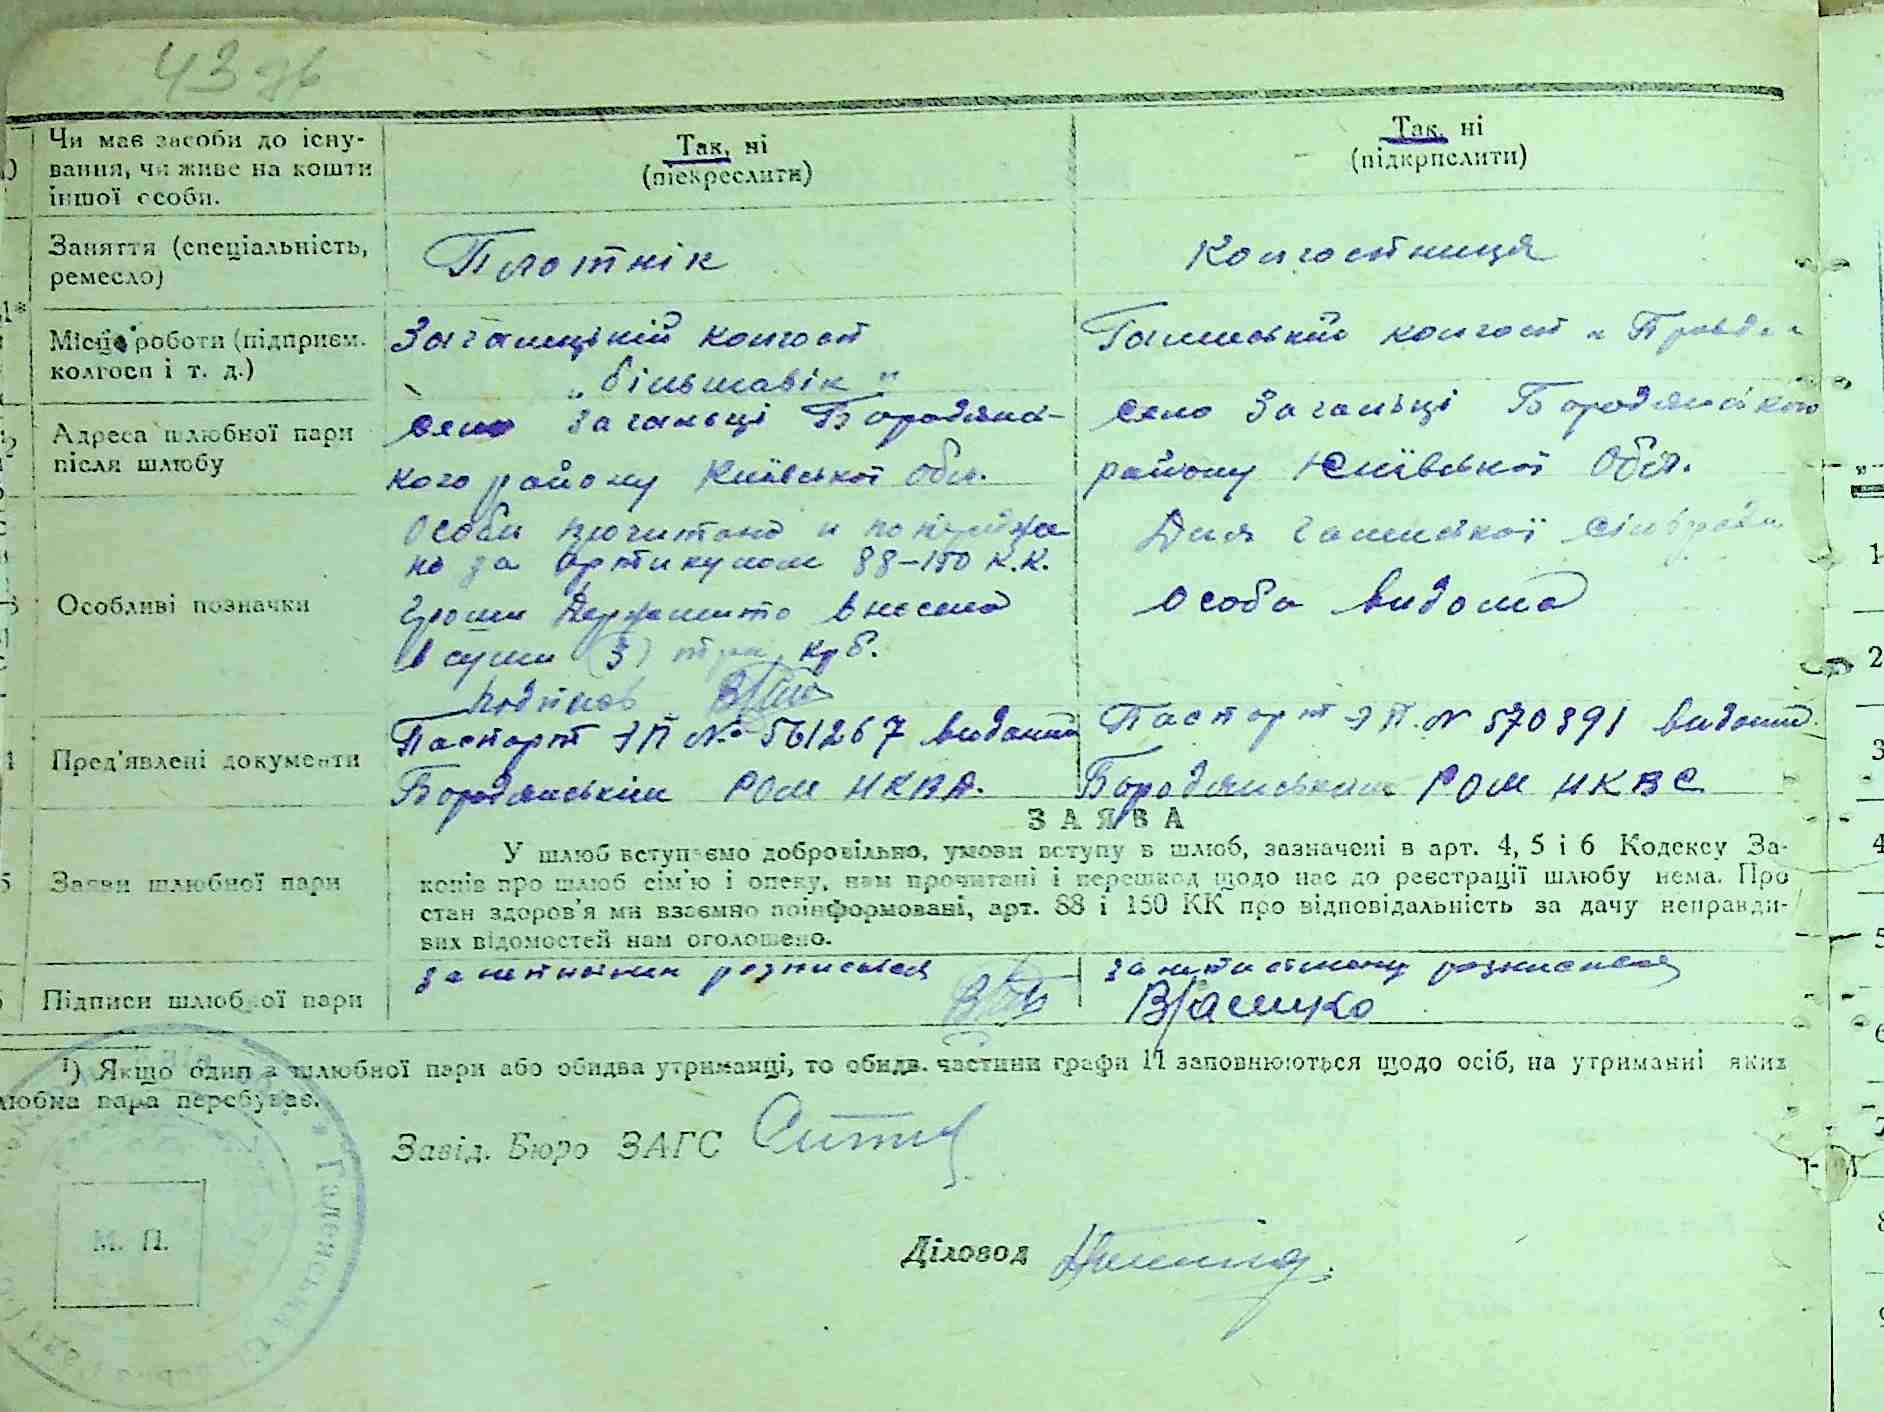 43
Чи має засоби до існу-
вання, чи живе на кошти
іншої особи.
Так, ні
(підкреслити)
Так, ні
(підкрпслити)
Заняття (спеціальність,
ремесло)
Плотнік
Колгостниця
Місце роботи (підприєм.
колгосп і т. д.)
Загальцікій колгосп
„Більшавік"
колгосп „Правда"
Адреса шлюбної пари
після шлюбу
село Загальці Бородянсь-
кого району Київської Обл.
село Загальці Бородянського
району Київської Обл.
Особливі позначки
Особи прочитано и
но за артикулом 88-150 К.К.
гроши Держмито внесено
в суми (3) три крб.
подпись
Для сільради
Особа видома
Пред'явлені документи
Паспорт ЭП № 561267 виданий
Бородянським РОМ НКВД.
Паспорт ЭП. № 570391 виданий
Бородянським РОМ НКВС
ЗАЯВА
Заяви шлюбної пари
У шлюб вступаємо добровільно, умови вступу в шлюб, зазначені в арт. 4, 5 і 6 Кодексу За-
конів про шлюб сім'ю і опеку, нам прочитані і перешкод щодо нас до реєстрації шлюбу нема. Про
стан здоров'я ми взаємно поінформовані, арт. 88 і 150 КК про відповідальність за дачу неправди-
вих відомостей нам оголошено.
Підписи шлюбної пари
розписався
розписалась
¹) Якщо один з шлюбної пари або обидва утриманці, то обидв. частини графи 11 заповнюються щодо осіб, на утриманні яких
шлюбна пара перебуває.
Завід. Бюро ЗАГС
М. П.
Діловод